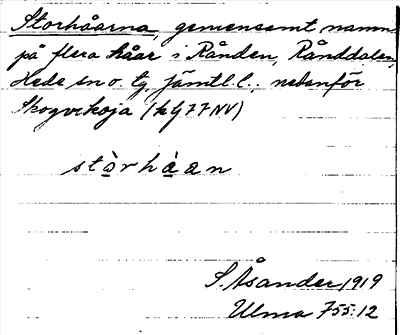 Storhåarna, gemensamt namn
på flera håar i Rånden, Rånddalen,
Hede sn o. tg, Jämtl. l.; nedanför
Skogvkoja (kbl 77 NV)
stòrhàan
S. Åsander 1919
Ulma 755:12